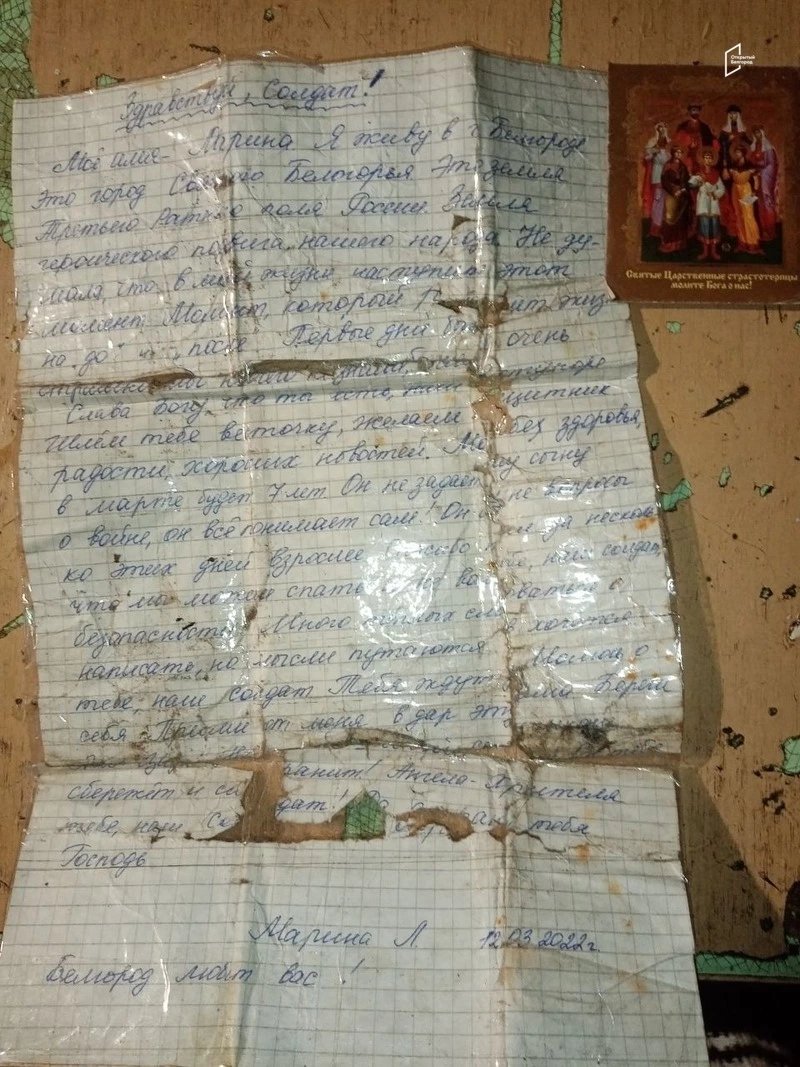 Открытый
Белгород
Здравствуй, Солдат!
Моё имя - Марина Я живу в г. Белгороде
Это город Белогорья Эта земля
Третьего Ратного поля России Земля
героического подвига нашего народа Не ду-
мала, что в моей жизни наступит этот
момент. Момент, который жиз
на до и после Первые дни очень
Слава Богу, что ты есть, наш
Шлём тебе весточку, желаем здоровья,
радости, хороших новостей. сыну
в марте будет 7 лет Он не задаёт вопросы
о войне, он всё понимает сам! Он за несколь
ко этих дней взрослее Спасибо наш солдат,
что мы можем спать и не
безопасности Много тёплых хочется
написать, но мысли путаются Молюсь о
тебе, наш Солдат Тебя ждут Береги
себя Прими от меня в дар
сбережёт и Ангела-Хранителя
тебе, наш тебя
Господь
Марина Л. 12.03.2022г.
Белгород любит вас!
Святые Царственные страстотерпцы
молите Бога о нас!